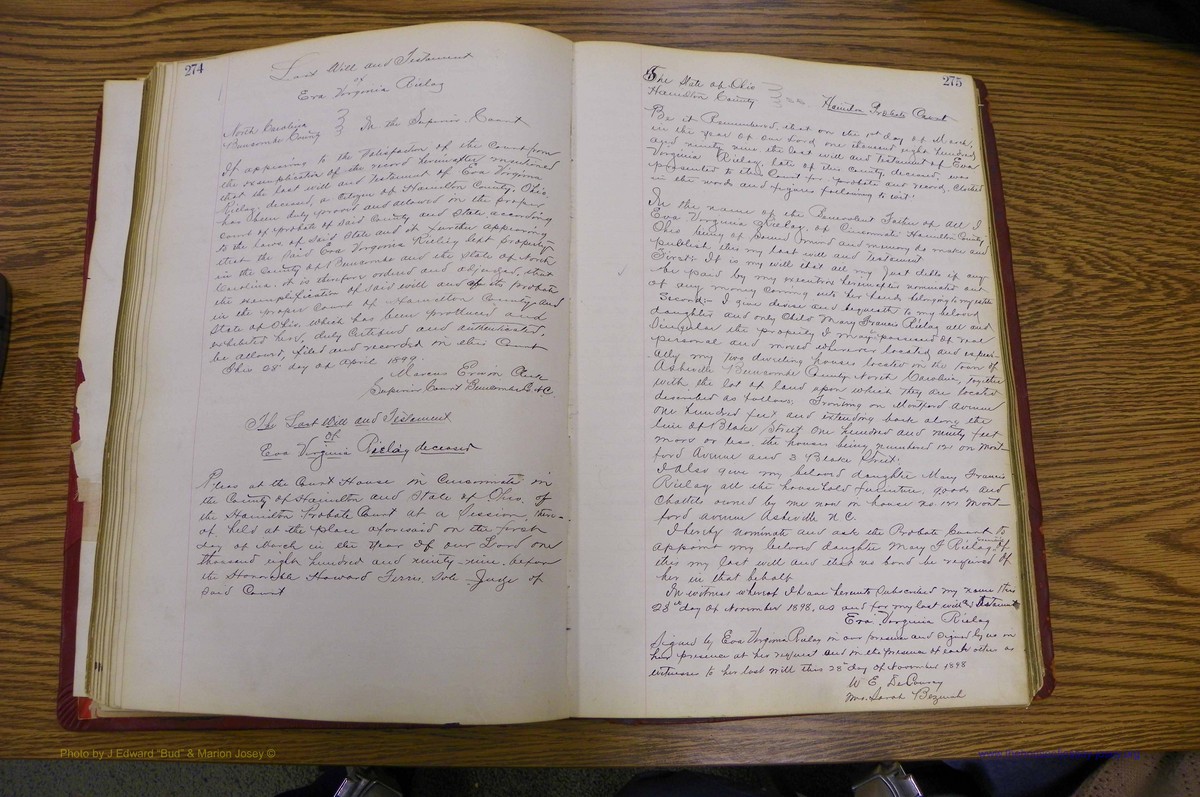 274
Last Will and Testament
of
Eva Virginia Rielag
North Carolina
Buncombe County
In the Superior Court
It appearing to the Satisfaction of the Court from
the exemplification of the record hereinafter mentioned
that the last will and Testament of Eva Virginia
Rielag, deceased, a Citizen of Hamilton County, Ohio,
has been duly proved and allowed in the proper
Court of Probate of said County and State according
to the laws of said State and it further appearing
that the said Eva Virginia Rielag left property
in the County of Buncombe and the State of North
Carolina, it is therefore ordered and adjudged, that
the exemplification of said will and of its probate
in the proper Court of Hamilton County and
State of Ohio, which has been produced and
exhibited here, duly Certified and authenticated,
be allowed, filed and recorded in this Court
This 28" day of April 1899.
Marcus Erwin Clerk
Superior Court Buncombe Co N.C.
The Last Will and Testament
of
Eva Virginia Rielag deceased
Pleas at the Court House in Cincinnati in
the County of Hamilton and State of Ohio, of
the Hamilton Probate Court at a Session, there-
of held at the place aforesaid on the first
day of March in the Year of our Lord one
thousand eight hundred and ninety-nine before
the Honorable Howard Ferris, Sole Judge of
said Court
275
The State of Ohio
Hamilton County
SS.
Hamilton Probate Court
Be it Remembered, that on the 1st day of March,
in the year of our Lord, one thousand eight hundred
and ninety nine the last will and Testament of Eva
Virginia Rielag, late of this County, deceased, was
presented to this Court for probate and record,
in the words and figures following to wit:
In the name of the Benevolent Father of all I
Eva Virginia Rielag, of Cincinnati Hamilton County
Ohio being of sound mind and memory do make and
publish this my last will and testament.
First: It is my will that all my Just debts if any
be paid by my executrix hereinafter nominated out
of any money coming into her hands belonging to my estate
Second:- I give devise and bequeath to my beloved
daughter and only Child Mary Francis Rielag all and
Singular the property I may possessed of real
personal and mixed wherever located and especi-
ally my two dwelling houses located in the town of
Asheville Buncombe County, North Carolina, together
with the lot of land upon which they are located
described as follows; Fronting on Montford Avenue
one hundred feet and extending back along the
line of Blake Street one hundred and ninety feet
more or less, the houses being numbered 121 on Mont-
ford Avenue and 3 Blake Street;
I also give my beloved daughter Mary Francis
Rielag all the household furniture, goods and
Chattels owned by me now in house no. 121 Mont-
ford avenue Asheville N.C.
I hereby nominate and ask the Probate Court to
appoint my beloved daughter Mary F Rielag, executrix of
this my last will and that no bond be required of
her in that behalf
In witness whereof I have hereunto subscribed my name this
28" day of November 1898, as and for my last will & Testament
Eva Virginia Rielag
Signed by Eva Virginia Rielag in our presence and signed by us in
her presence at her request and in the presence of each other as
witnesses to her last will this 28" day of November 1898
W. E. DeCourcy
Mrs. Sarah
Photo by J Edward "Bud" & Marion Josey ©